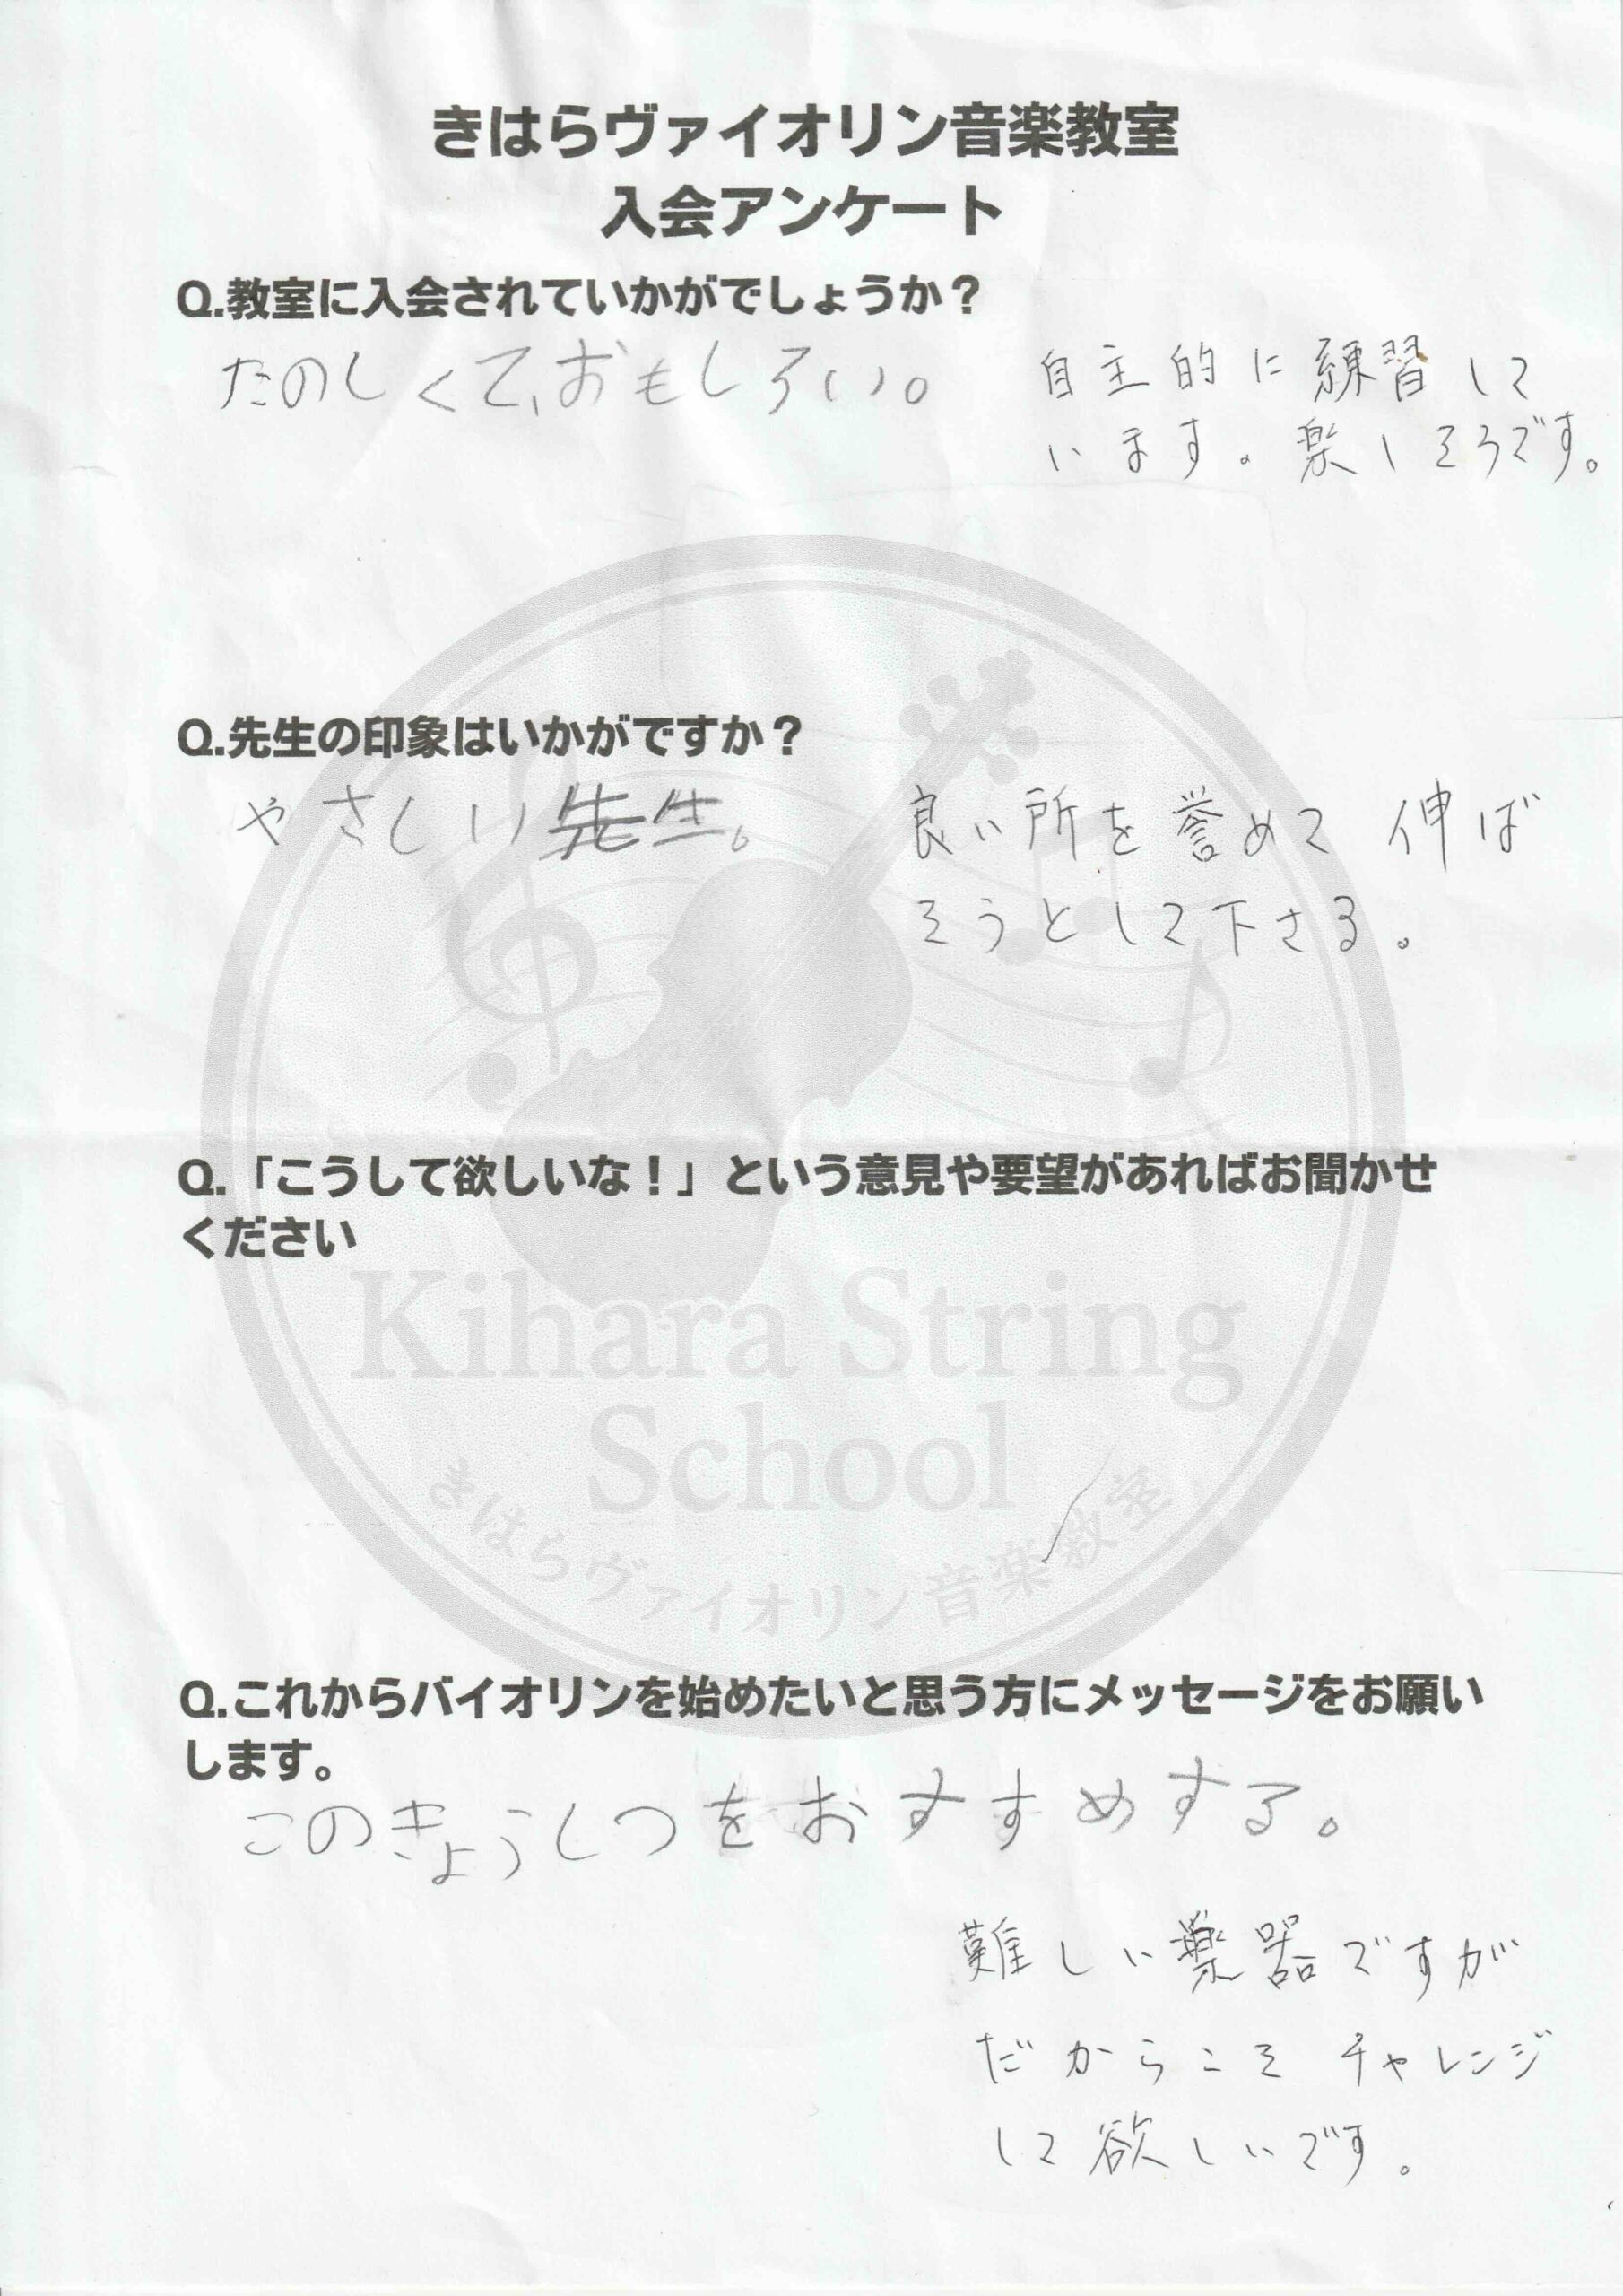 きはらヴァイオリン音楽教室
入会アンケート
Q.教室に入会されていかがでしょうか？
たのしくて、おもしろい。
自主的に練習して
います。楽しそうです。
Q.先生の印象はいかがですか？
やさしい先生。
良い所を誉めて伸ば
そうとして下さる。
Q.「こうして欲しいな！」という意見や要望があればお聞かせ
ください
Kihara String
School
きはらヴァイオリン音楽教室
Q.これからバイオリンを始めたいと思う方にメッセージをお願い
します。
このきょうしつをおすすめする。
難しい楽器ですが
だからこそ チャレンジ
して欲しいです。